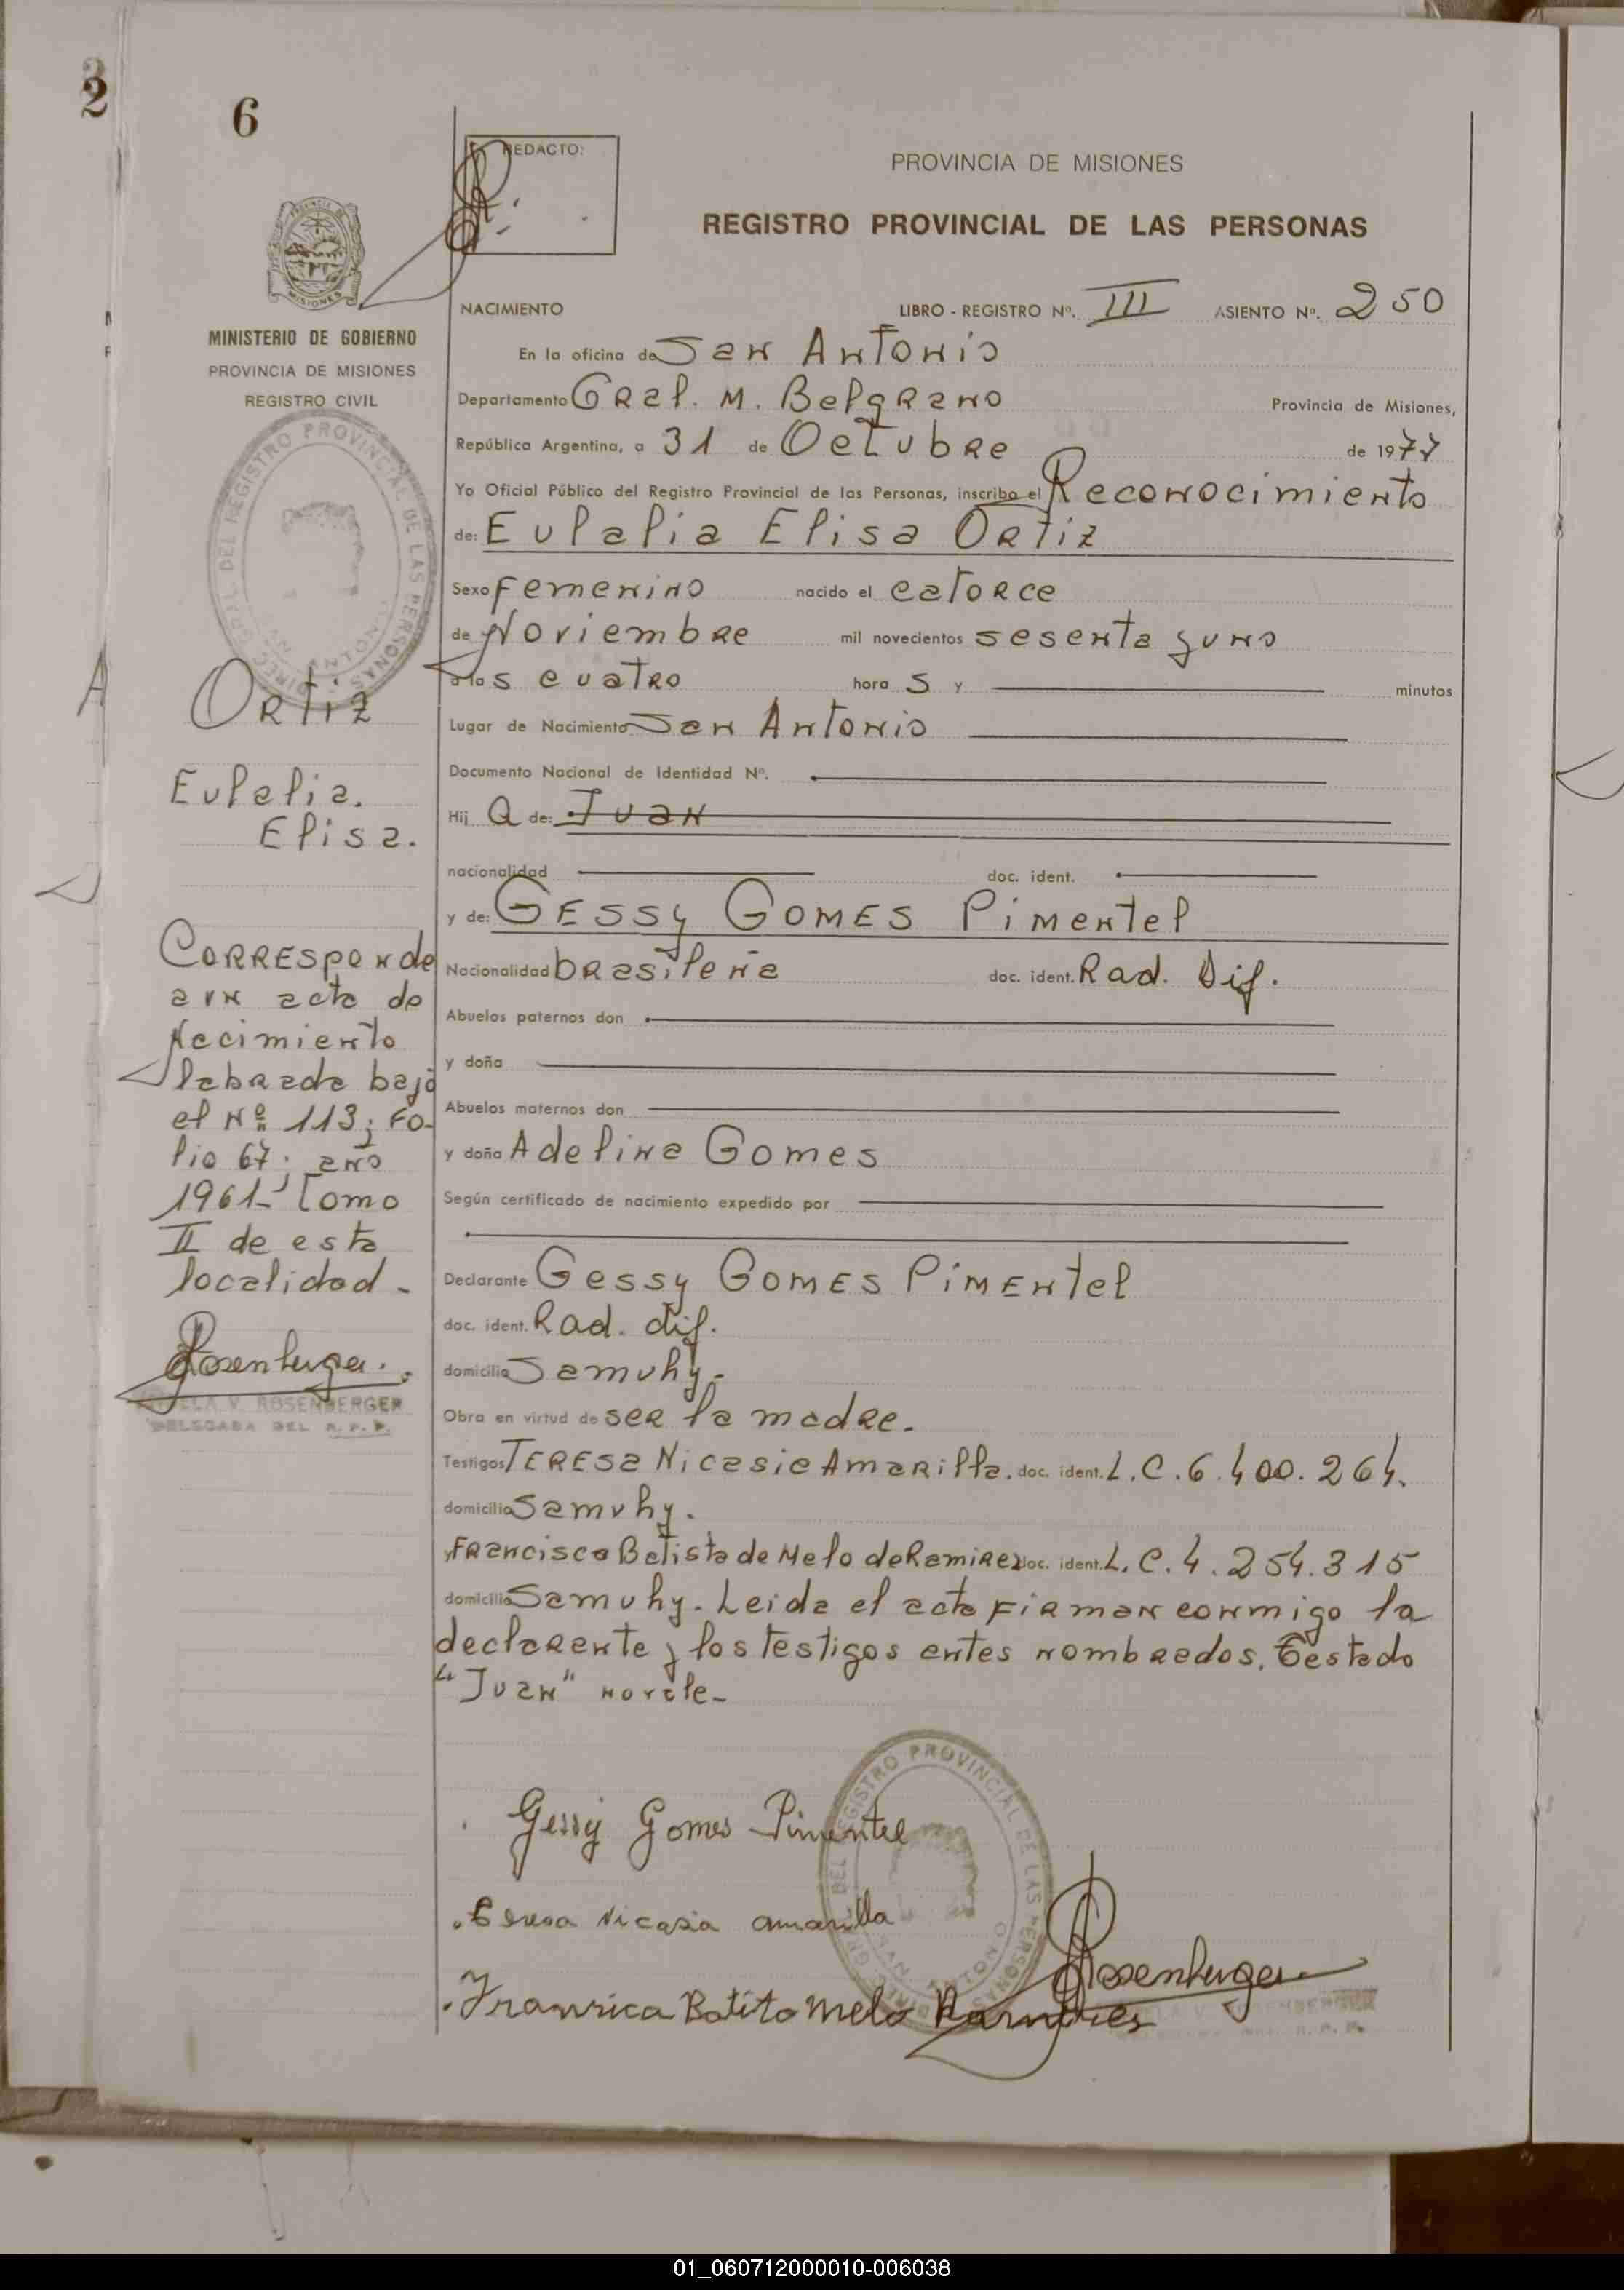 2
6
REDACTO:
PROVINCIA DE MISIONES
REGISTRO PROVINCIAL DE LAS PERSONAS
MISIONES
MINISTERIO DE GOBIERNO
PROVINCIA DE MISIONES
REGISTRO CIVIL
NACIMIENTO LIBRO - REGISTRO Nº. III ASIENTO Nº. 250
En la oficina de San Antonio
Departamento Gral. M. Belgrano Provincia de Misiones,
República Argentina, a 31 de Octubre de 1977
Yo Oficial Público del Registro Provincial de las Personas, inscribo el Reconocimiento
de: Eulalia Elisa Ortiz
Sexo Femenino nacido el catorce
de Noviembre mil novecientos sesenta y uno
a las cuatro hora s y minutos
Lugar de Nacimiento San Antonio
Documento Nacional de Identidad Nº.
Hij a de: Juan
nacionalidad doc. ident.
y de: Gessy Gomes Pimentel
Nacionalidad brasileña doc. ident. Rad. Dif.
Abuelos paternos don
y doña
Abuelos maternos don
y doña Adelina Gomes
Según certificado de nacimiento expedido por
Declarante Gessy Gomes Pimentel
doc. ident. Rad. dif.
domicilio Samuhy.
Obra en virtud de ser la madre.
Testigos Teresa Nicasia Amarilla. doc. ident. L.C. 6.400.264.
domicilio Samuhy.
y Francisca Batista de Melo de Ramirez doc. ident. L.C. 4.254.315
domicilio Samuhy. Leida el acta firman conmigo la
declarante y los testigos antes nombrados. Testado
"Juan" no vale-
Ortiz
Eulalia.
Elisa.
Corresponde
a un acta de
Nacimiento
labrada bajo
el Nº 113; Fo-
lio 67; año
1961- Tomo
II de esta
localidad-
Rosenberger.
V. ROSENBERGER
DELEGADA DEL R. P. P.
Gessy Gomes Pimentel
Teresa Nicasia amarilla
DEL REGISTRO PROVINCIAL DE LAS PERSONAS
SAN ANTONIO
Rosenberger
Francisca Batita Melo Ramires
V. ROSENBERGER
01_060712000010-006038